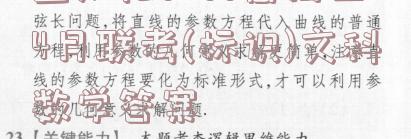 弦长问题,将直线的参数方程代入曲线的普通
方程,利用参数的几何意义求解更简单,注意直
线的参数方程要化为标准形式,才可以利用参
数的几何意义求解问题.
月联考(标识)文科
数学答案
23.【关键能力】 本题考查逻辑思维能力